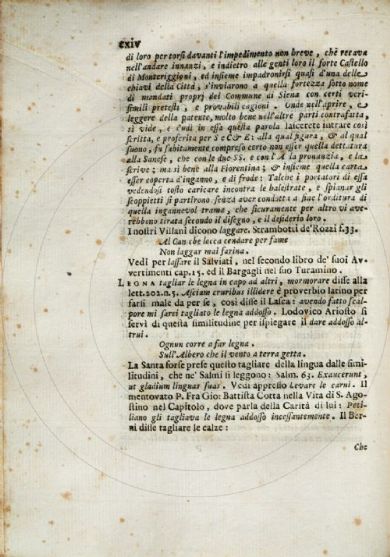 cxiv
di loro per torsi davanti l'impedimento non breve, che recava
nell'andare innanzi, e indietro alle genti loro il forte Castello
di Monteriggioni, ed insieme impadronirsi quasi d'una delle
chiavi della Città, s'inviarono a quella fortezza sotto nome
di mandati proprj del Comune di Siena con certi veri-
simili pretesti, e provabili cagioni. Onde nell'aprire, e
leggere della patente, molto bene nell'altre parti contraffatta,
si vide, e udì in essa questa parola laicerete intrare così
scritta, e proferita per S e C & E: alla qual figura, & al qual
suono, fu subitamente compreso certo non esser quella dettatura
alla Sanese, che con le due SS. e con l'A la pronunzia, e la
scrive; ma sì benè alla Fiorentina; & insieme quella carta
esser coperta d'inganno, e di frode: Talchè i portatori di essa
vedendosi tosto caricare incontra le balestrate, e spianar gli
scoppietti si partirono senza aver condutta a fine l'orditura di
quella ingannevol trama, che sicuramente per altro vi avе-
rebbono tirata secondo il disegno, e il desiderio loro.
I nostri Villani dicono laggare. Strambotti de'Rozzi f.33.
Al Can che lecca cendare per fame
Non laggar mai farina.
Vedi per lassare il Salviati, nel secondo libro de' suoi Av-
vertimenti cap.15. ed il Bargagli nel suo Turamino.
LEGNA tagliar le legna in capo ad altri, mormorare disse alla
lett.202.n.5. Asciam cruribus illidere è proverbio latino per
farsi male da per se, così disse il Lasca: avendo fatto scal-
pore mi sarei tagliato le legna addosso. Lodovico Ariosto si
servì di questa similitudine per ispiegare il dare addosso al-
trui.
Ognun corre a far legna.
Sull'Albero che il vento a terra getta.
La Santa forse prese questo tagliare della lingua dalle simi-
litudini, che ne' Salmi si leggono: Salm. 63. Exacuerunt,
ut gladium linguas suas. Vedi appresso Levare le carni. Il
mentovato P. Fra Gio: Battista Cotta nella Vita di S. Ago-
stino nel Capitolo, dove parla della Carità di lui: Peti-
liano gli tagliava le legna addosso incessantemente. Il Ber-
ni disse tagliare le calze:
Che